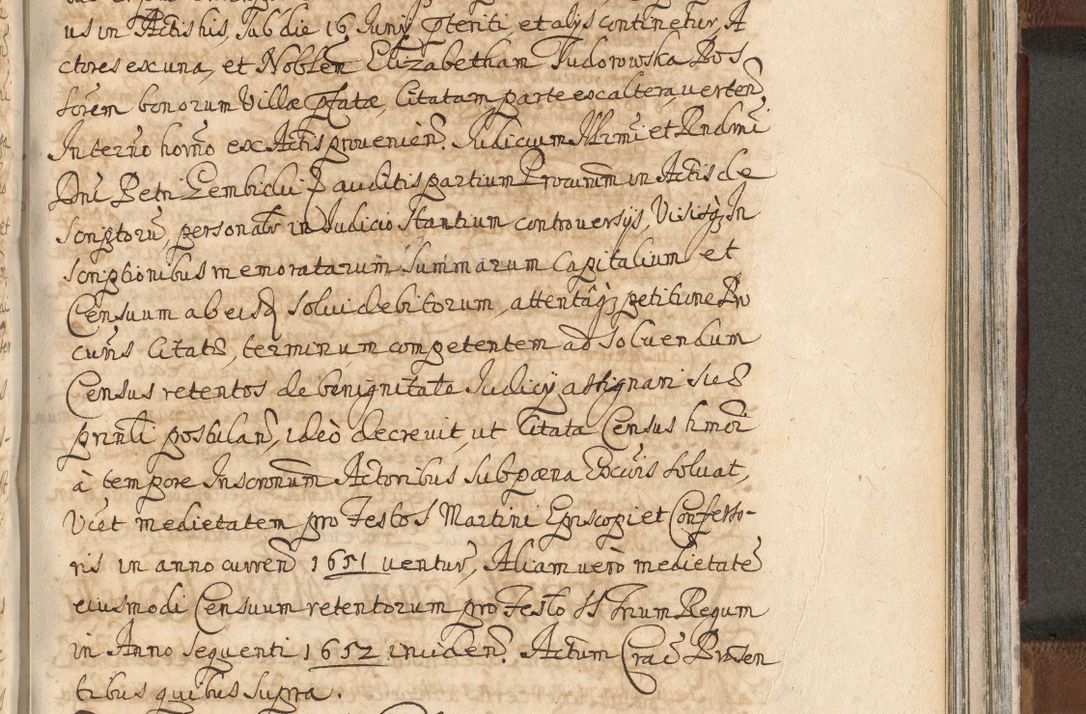 us in Actis his, Sub die 16 Junij pteriti, et alijs continetur, A
ctores ex una, et Noblem Elizabetham Tudorowska Pos
sorem bonorum Villæ pfatæ Citatam parte ex altera, verten
In termo horno ex Actis provenien. Judicium Illrmi et Rndmi
Dni Petri Gembicki E auditis partium Procurum in Actis de
scriptoru, personalr in Judicio stantium controversijs, Visisq In
scriptionibus memoratarum Summarum Capitalium et
Censuum ab eisd solvi debitorum, attentaq petitione Pro
curis Citatæ, terminum competentem ad solvendum
Census retentos de benignitate Judicij assignari suæ
prinli postulan, ideò decrevit, ut Citata Census hmoi
à tempore Inscronum Actoribus sub pœna Excois solvat,
Vidt medietatem pro Festo S Martini Episcopi et Confesso-
ris in anno curren 1651 ventur, Aliam verò medietate
eiusmodi Censuum retentorum pro Festo SS Trium Regum
in Anno sequenti 1652 inciden. Actum Crac Præsen
tibus quibus supra.